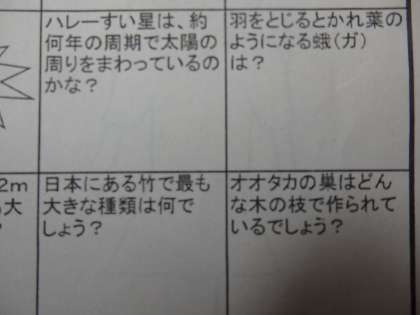 ハレーすい星は、約
何年の周期で太陽の
周りをまわっているの
かな？
羽をとじるとかれ葉の
ようになる蛾（ガ）
は？
2m
大
？
日本にある竹で最も
大きな種類は何で
しょう？
オオタカの巣はどん
な木の枝で作られて
いるでしょう？